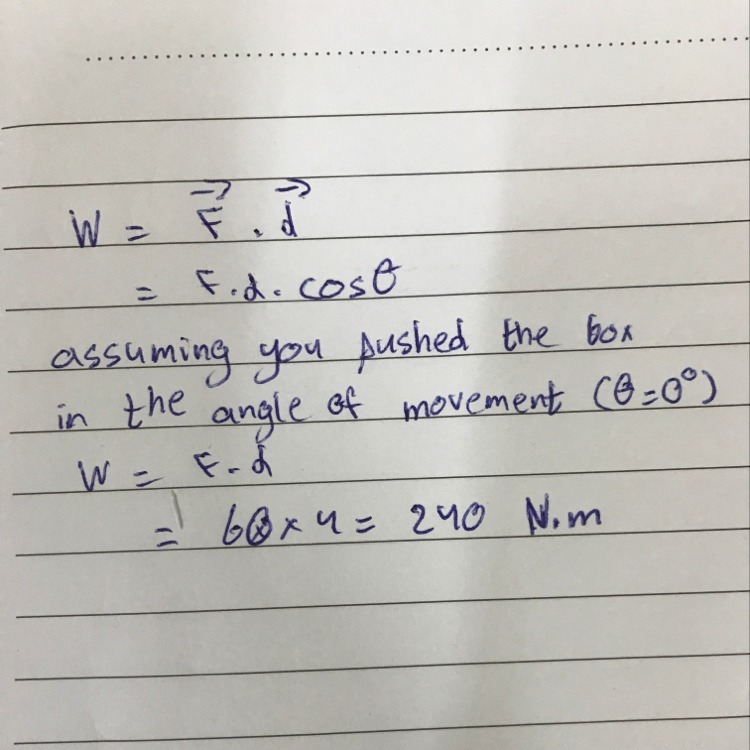 W = F⃗ . d⃗
= F.d. cosθ
assuming you pushed the box
in the angle of movement (θ=0°)
W = F.d
= 60×4 = 240 N.m